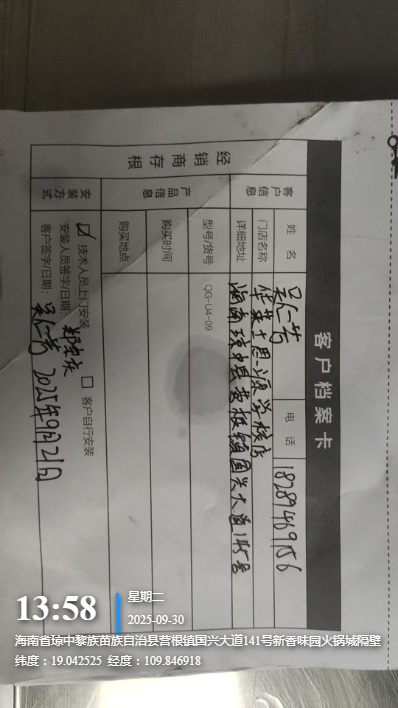 客户档案卡
经销商存根
客户信息
姓名 吴仁芳 电话 18289469156
门店名称 华莱士思源学校店
详细地址 海南琼中县营根镇国兴大道145号
产品信息
型号/货号 QG-U4-09
购买时间
购买地点
安装方式
☑ 技术人员上门安装 □ 客户自行安装
安装人员签字/日期:
客户签字/日期: 吴仁芳 2025年9月21日
13:58
星期二
2025-09-30
海南省琼中黎族苗族自治县营根镇国兴大道141号新香味园火锅城隔壁
纬度：19.042525 经度：109.846918